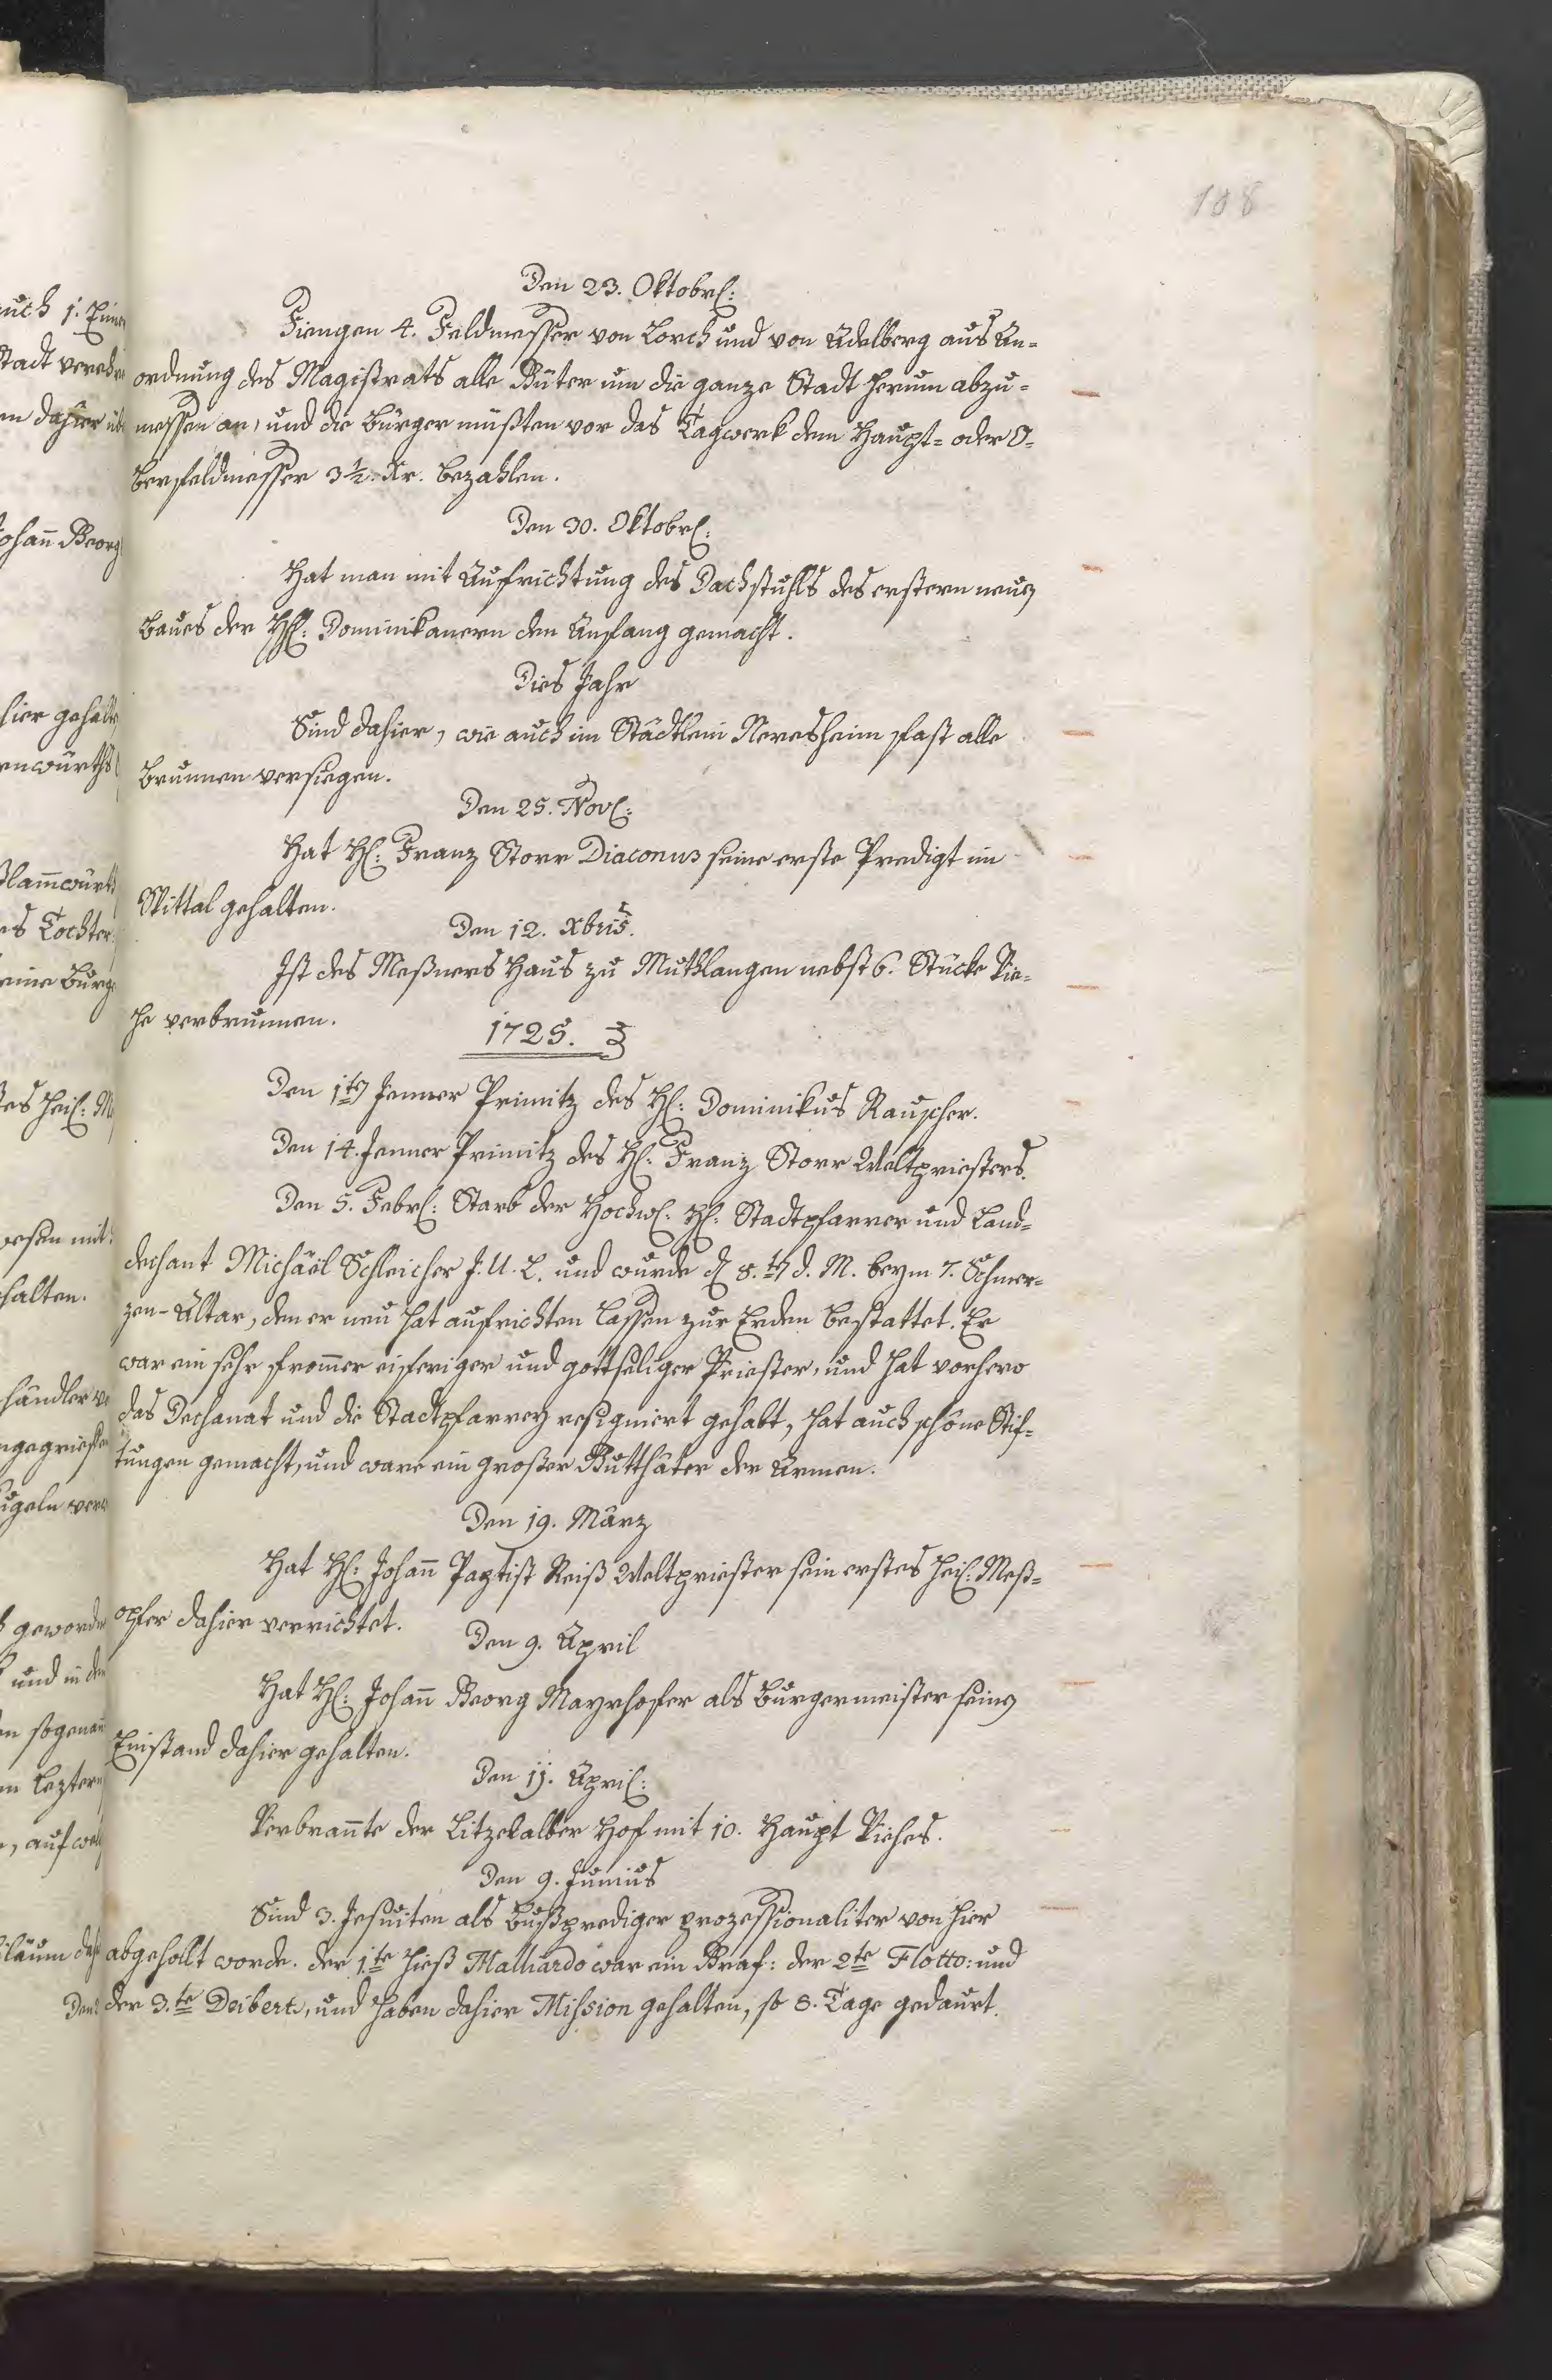 108
Den 23. Oktobrl:
Fiengen 4. Feldmesser von Lorch und von Adelberg aus An=
ordnung des Magistrats alle Güter um die ganze Stadt herum abzu=
messen an, und die Bürger müßten vor das Tagwerk dem Haupt= oder O=
berfeldmesser 3 1/2. Xr. bezahlen.
Den 30. Oktobrl:
Hat man mit Aufrichtung des Dachstuhls des erstern neuen
Baues der Hl: Dominikanern den Anfang gemacht.
Dies Jahr
Sind dahier, wie auch im Städtlein Neresheim fast alle
Brunnen versiegen.
Den 25. Novl:
Hat Hl: Franz Storr Diaconus seine erste Predigt im
Spittal gehalten.
Den 12. Xbris.
Ist des Meßners Haus zu Muthlangen nebst 6. Stücke Vie=
he verbrunnen.
1725.
Den 1ten Jenner Primitz des Hl: Dominikus Rauscher.
Den 14. Jenner Primitz des Hl: Franz Storr Weltpriesters.
Den 5. Febrl: Starb der Hochwl: Hl: Stadtpfarrer und Land=
dechant Michäel Schleicher J. U. L. und wurde d 8.ten d. M. beym 7. Schmer=
zen-Altar, den er neu hat aufrichten lassen zur Erden bestattet. Er
war ein sehr from̄er eiferiger und gottseliger Priester, und hat vorhero
das Dechanat und die Stadtpfarrey resigniert gehabt, hat auch schöne Stif=
tungen gemacht, und ware ein großer Gutthäter der Armen.
Den 19. März
Hat Hl: Johan̄ Paptist Reiß Weltpriester sein erstes heil: Meß=
opfer dahier verrichtet.
Den 9. April
Hat Hl: Johan̄ Georg Mayrhofer als Burgermeister seinen
Einstand dahier gehalten.
Den 11. April:
Verbran̄te der Litzelalber Hof mit 10. Haupt Viehes.
Den 9. Junius
Sind 3. Jesuiten als Bußprediger prozessionaliter von hier
abgeholt worde. der 1.te hieß Malhardo war ein Graf: der 2te Flotto: und
der 3.te Deibert, und haben dahier Mission gehalten, so 8. Tage gedaurt.